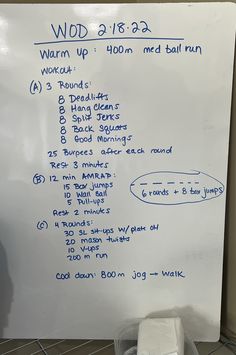 WOD 2.18.22
Warm up: 400m med ball run
Workout:
(A) 3 Rounds:
8 Deadlifts
8 Hang Cleans
8 Split Jerks
8 Back Squats
8 Good Mornings
25 Burpees after each round
Rest 3 minutes
(B) 12 min AMRAP:
15 Box jumps
10 Wall Ball
5 Pull-ups
6 rounds + 8 box jumps
Rest 2 minutes
(C) 4 Rounds:
30 SL sit-ups w/ plate OH
20 mason twists
10 V-ups
200 m run
Cool down: 800m jog → walk